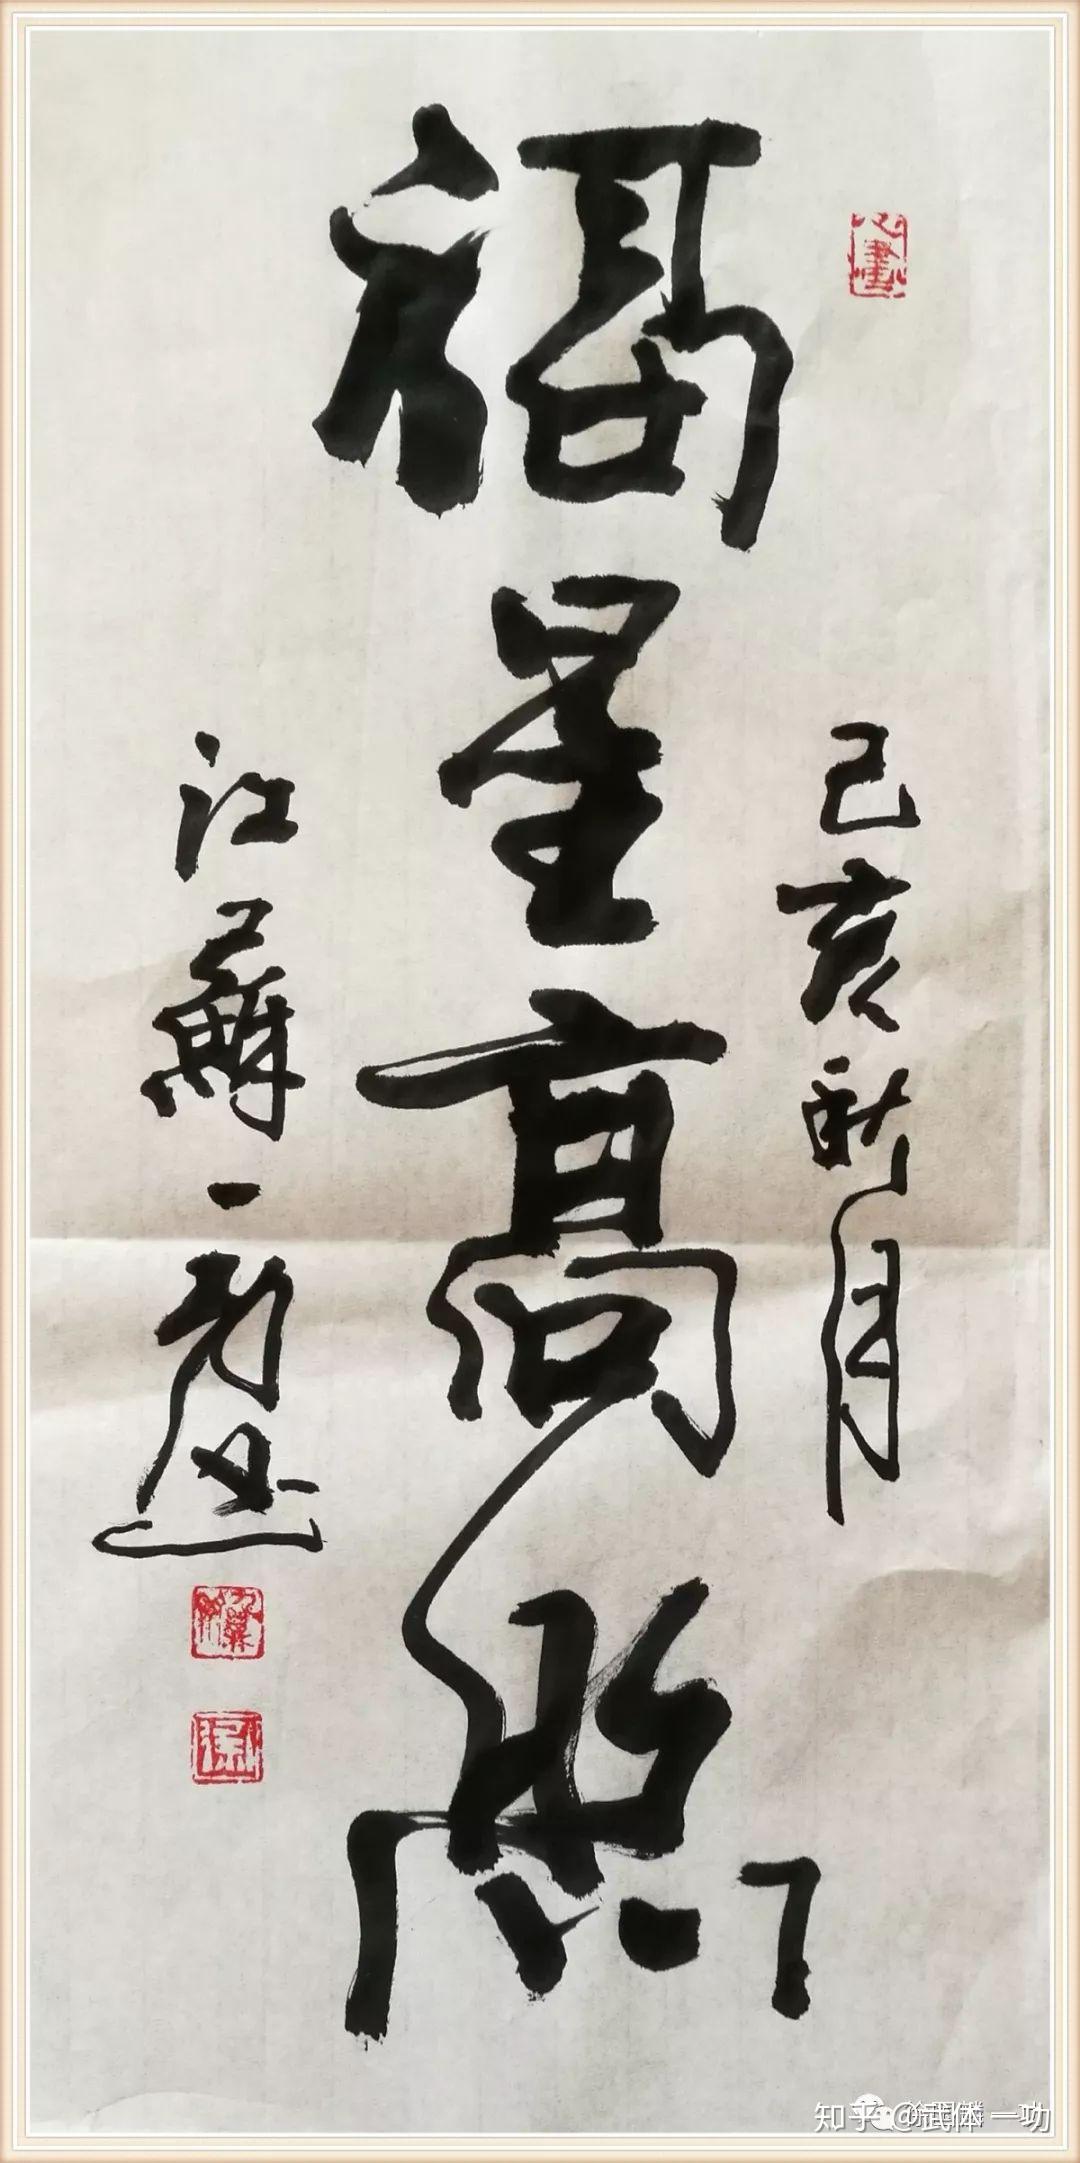 己亥秋月
福星高照
江蘇一老
知乎 @武体一功